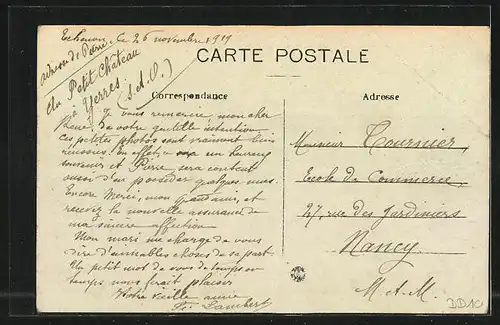 le 26 novembre 1919
CARTE POSTALE
adresse de Pierre
du Petit Château
à Yerres. (S. et O.)
Correspondance
Adresse
Je vous remercie mon cher
René, de votre gentille intention
ces petites photos sont vraiment bien
réussies. En effet, un heureux
souvenir et Pierre, sera content
aussi d'en posséder quelques unes.
Encore Merci, mon grand ami, et
recevez la nouvelle assurance de
ma sincère affection
Mon mari me charge de vous
dire d'aimables choses de sa part.
Un petit mot de vous de temps en
temps nous ferait plaisir
Votre vieille amie
Lambert
Monsieur Tournier,
Ecole de Commerce,
27, rue des Jardiniers
Nancy
M. et M.
DD10